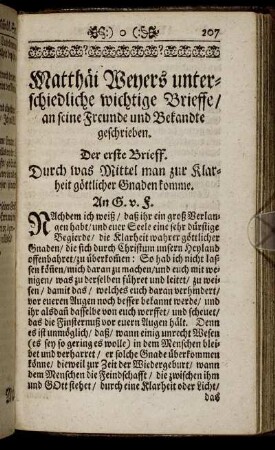 o 207
Matthäi Weyers unter-
schiedliche wichtige Brieffe/
an seine Freunde und Bekandte
geschrieben.
Der erste Brieff.
Durch was Mittel man zur Klar-
heit göttlicher Gnaden komme.
An G. v. F.
NAchdem ich weiß/ daß ihr ein groß Verlan-
gen habt/ und euer Seele eine sehr dürstige
Begierde/ die Klarheit wahrer göttlicher
Gnaden/ die sich durch Christum unsern Heyland
offenbahret/ zu überkom̃en: So hab ich nicht laß-
sen köñen/ mich daran zu machen/ und euch mit we-
nigen/ was zu derselben führet und leitet/ zu wei-
sen/ damit das/ welches euch daran verhindert/
vor eueren Augen noch besser bekannt werde/ und
ihr alsdañ dasselbe von euch werffet/ und scheuet/
das die Finsternuß vor euern Augen hält. Denn
es ist unmöglich/ daß/ wann einig unrecht Wesen
(es sey so gering es wolle) in dem Menschen bleibt
bleibet und verharret/ er solche Gnade überkommen
könne/ dieweil zur Zeit der Wiedergeburt/ wann
dem Menschen die Feindschafft/ die zwischen ihm
und GOtt stehet/ durch eine Klarheit oder Licht/
das